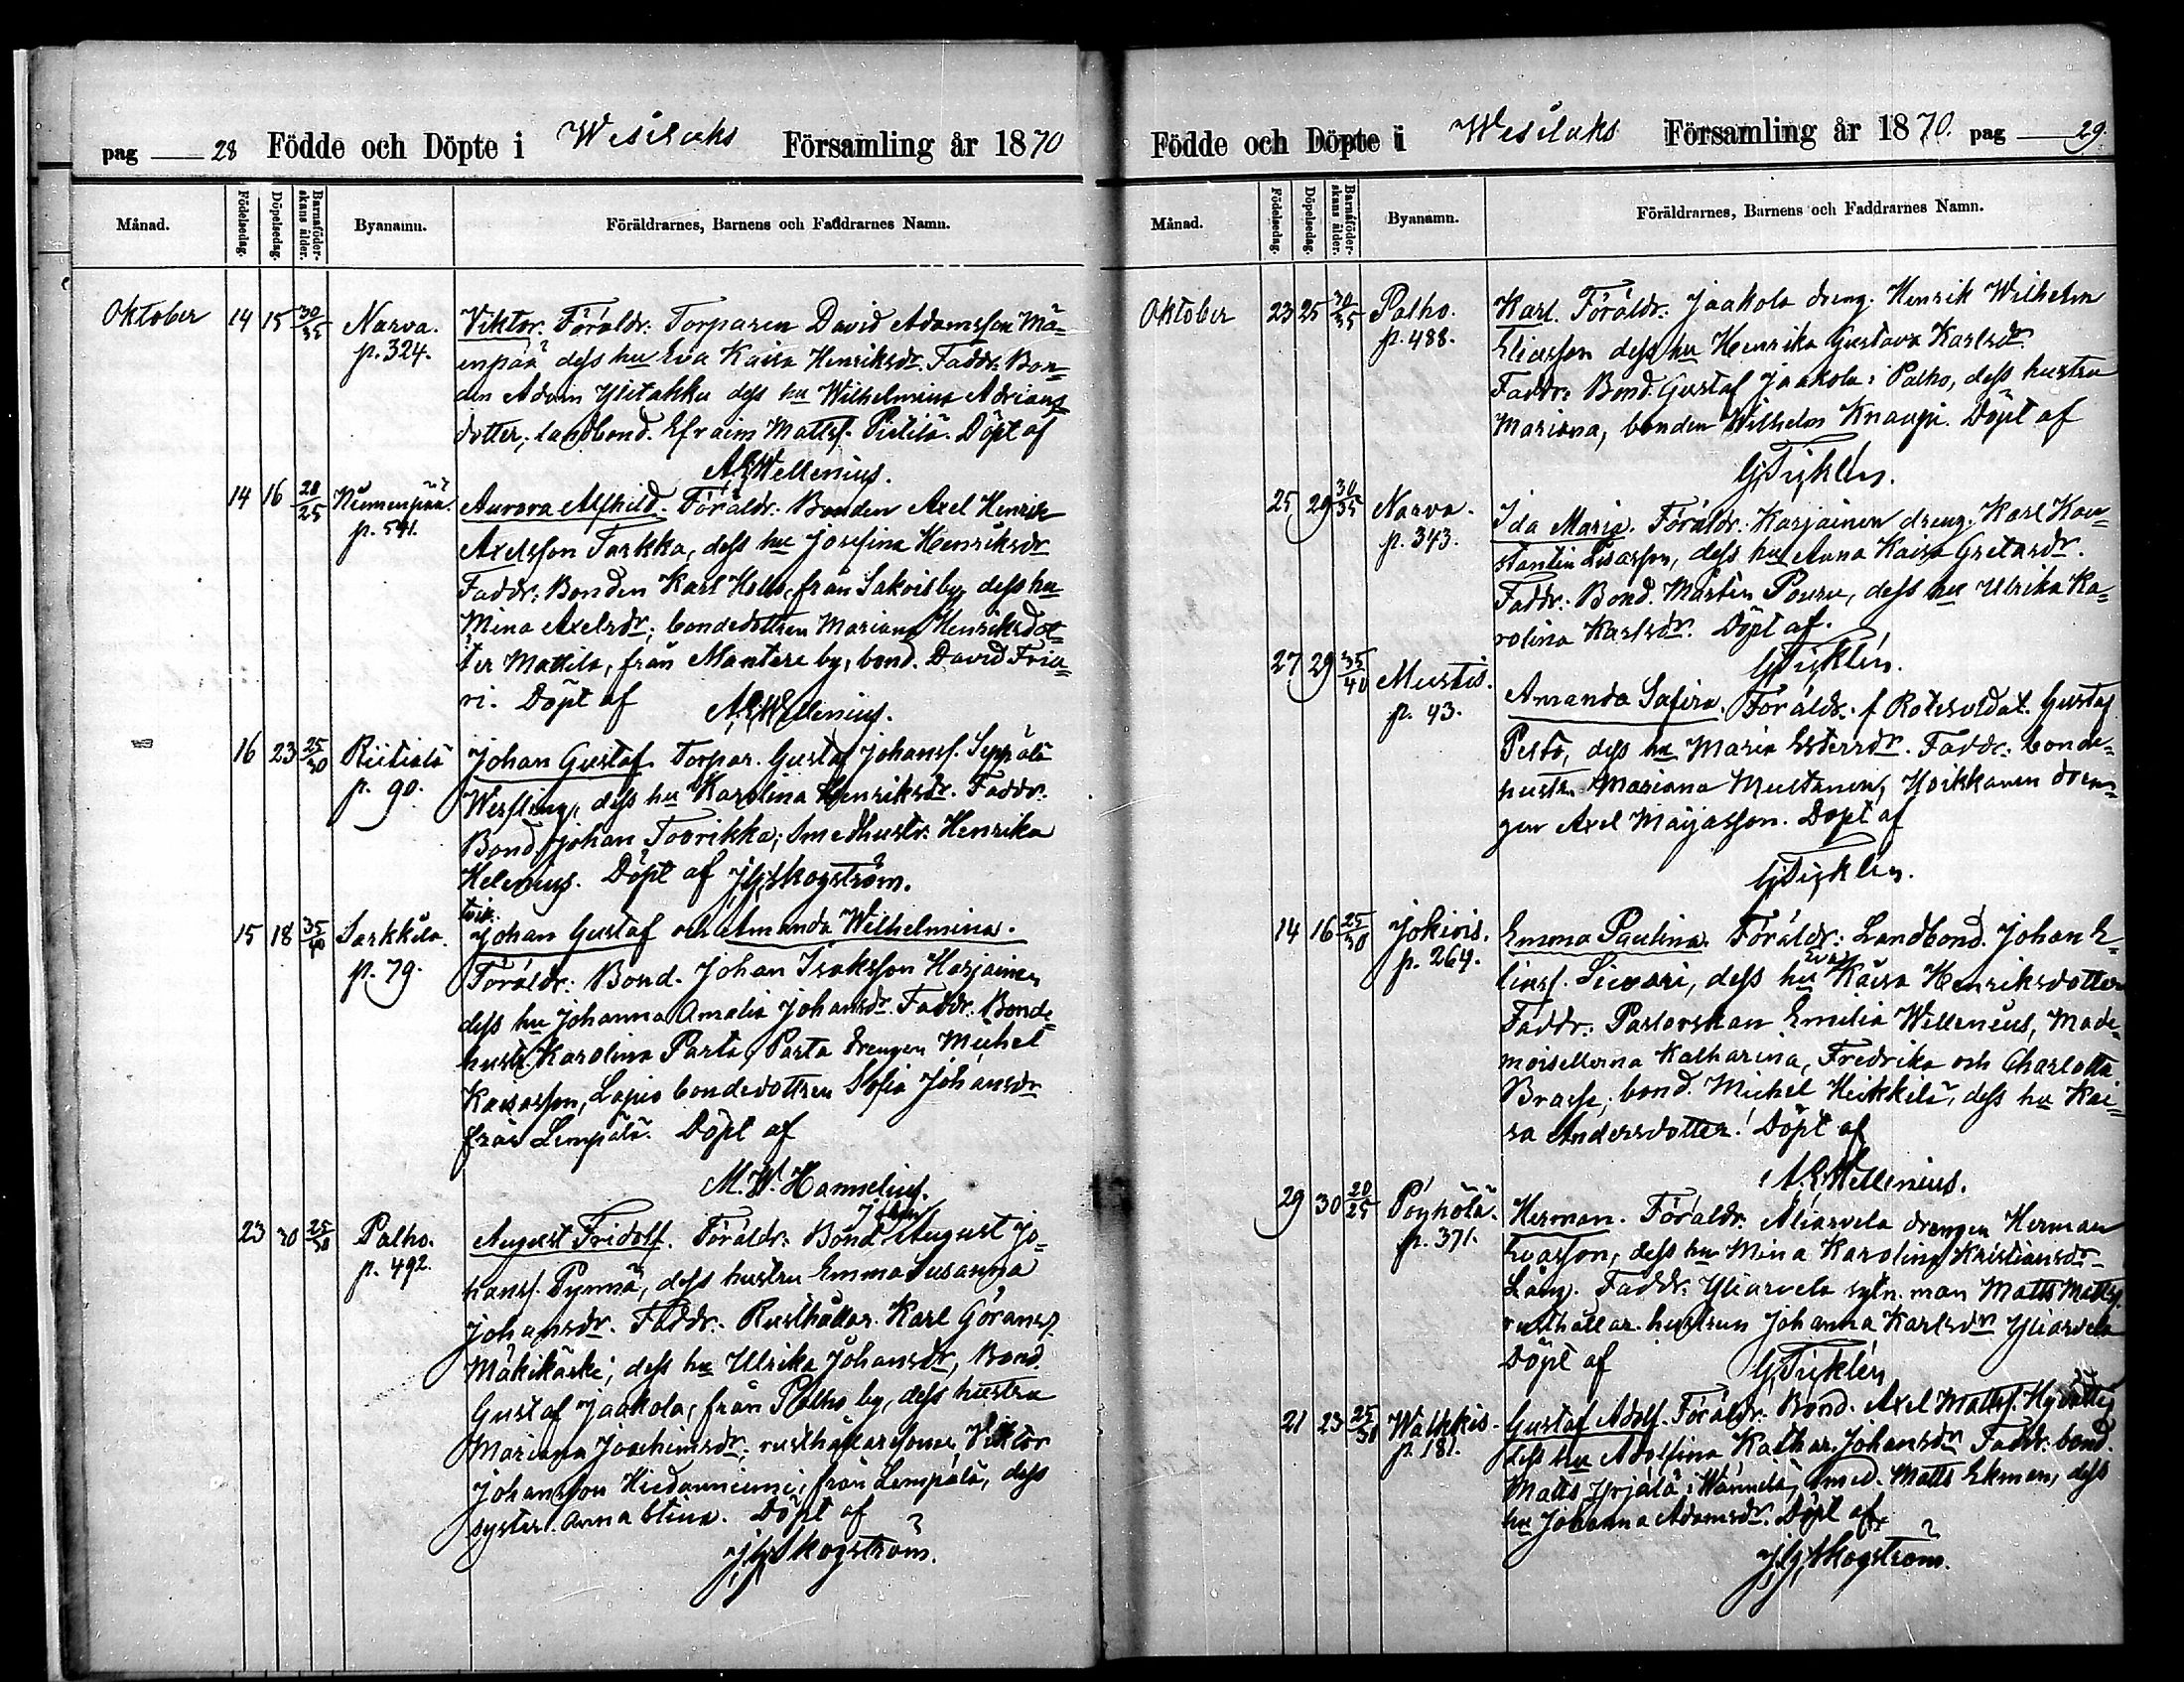 pag 28 Födde och Döpte i Wesilaks Församling år 1870
Månad. Födelsedag. Döpelsedag. Barnaföderskans ålder. Byanamn. Föräldrarnes, Barnens och Faddrarnes Namn.
Oktober 14 15 30/35 Narva. p. 324. Viktor. Föräldr: Torparen David Adamsson Mä=
enpää dess hu Eva Kaisa Henriksdr. Faddr: Bon=
den Adam Ylitakku dess hu Wilhelmina Adrians
dotter; landbond. Efraim Mattss. Pietilä. Döpt af
A E Wellenius.
14 16 20/25 Niemenpää. p. 541. Aurora Alfhild. Föräldr: Bonden Axel Henrik
Axelsson Tarkka, dess hu Josefina Henriksdr
Faddr: Bonden Karl från Sakois by, dess hu
Mina Axelsdr; bondedottren Mariana Henriksdot=
ter Mattila, från Mantere by, bond. David
ri. Döpt af A E Wellenius.
16 23 25/30 Riitiala p. 90. Johan Gustaf. Torpar. Gustaf Johanss. Seppälä
dess hu Karolina Henriksdr. Faddr:
Bond. Johan Toorikka; Smedhustr: Henrika
Helenius. Döpt af J G Skogström.
15 18 35/40 Sarkkila. p. 79. tvil.
Johan Gustaf och Amanda Wilhelmina.
Föräldr: Bond. Johan Isaksson Harjainen
dess hu Johanna Amalia Johansdr. Faddr: Bonde
hustr. Karolina Parta, Parta drengen Michel
Kaisasson, bondedottren Sofia Johansdr
från Lempälä. Döpt af
M. W. Hannelius.
23 30 25/30 Palho. p. 492. August Fridolf. Föräldr: Bond Johan August Jo=
hanss. Pynnä, dess hustru Emma Susanna
Johansdr. Faddr: Rusthållar. Karl Göranss.
Mäkikäski; dess hu Ulrika Johansdr, Bond.
Gustaf Jaakola, från Palho by, dess hustru
Mariana Joachimsdr; rusthållaresonen Viktor
Johansson Hiedanniemi, från Lempälä, dess
syster Anna Stina. Döpt af
J G Skogström.
Födde och Döpte i Wesilaks Församling år 1870. pag 29.
Månad. Födelsedag. Döpelsedag. Barnaföderskans ålder. Byanamn. Föräldrarnes, Barnens och Faddrarnes Namn.
Oktober 23 25 30/35 Palho. p. 488. Karl. Föräldr: Jaakola dreng. Henrik Wilhelm
Eliasson dess hu Henrika Gustava Karlsdr.
Faddr: Bond. Gustaf Jaakola i Palho, dess hustru
Mariana, bonden Wilhelm Knaapi. Döpt af
G Ticklén.
25 29 30/35 Narva. p. 343. Ida Maria. Föräldr: Karjainen dreng. Karl Kon=
stantin dess hu Anna Kaisa Gretasdr.
Faddr: Bond. Mårten Pouru, dess hu Ulrika Ka=
rolina Karlsdr. Döpt af.
G Ticklén.
27 29 35/40 Mustis. p. 43. Amanda Safira. Föräldr: f Rotesoldat. Gustaf
Pesto, dess hu Maria Estersdr. Faddr: bonde=
hustr. Mariana Mustanen, Hoikkanen dren=
gen Axel Maijasson. Döpt af
G Ticklén.
14 16 25/30 Jokiois. p. 264. Emma Paulina. Föräldr: Landbond. Johan E=
liass. Sieväri, dess hu Eva Kaisa Henriksdotter
Faddr: Pastorskan Emilia Wellenius, Made=
moisellerna Katharina, Fredrika och Charlotta
Brasse; bond. Michel Heikkilä, dess hu Kai=
sa Andersdotter. Döpt af
A E Wellenius.
29 30 20/25 Pöyhölä. p. 371. Herman. Föräldr: Aliarvela drengen Herman
Evasson, dess hu Mina Karolina Kristiansdr
Faddr: Yliarvela sytn. man Matts Mattss.
rusthållar. hustrun Johanna Karlsdr Yliarvela
Döpt af G Ticklén
21 23 25/30 Walkkis. p. 181. Gustaf Adolf. Föräldr: Bond. Axel Mattss.
dess hu Adolfina Kathar. Johansdr Faddr: bond.
Matts Yrjälä i Wännilä, smed. Matts Ekman, dess
hu Johanna Adamsdr. Döpt af.
J G Skogström.